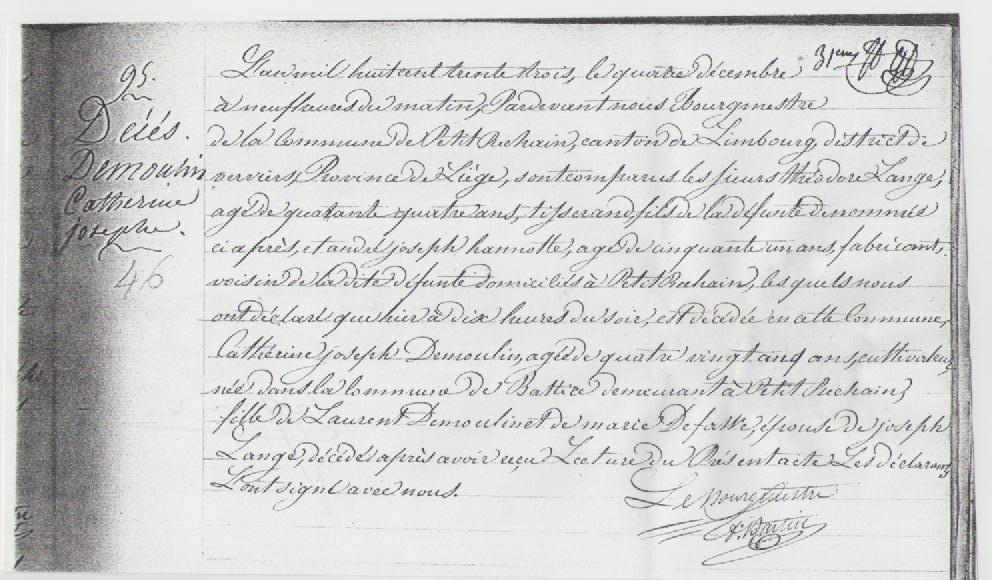 95.
Décés.
Demoulin
Catherine
joseph.
46
L'an mil huit cent trente trois, le quatre décembre
à neuf heures du matin, Pardevant nous Bourgmestre
de la Commune de Petit Rechain, canton de Limbourg, district de
verviers, Province de Liége, sont comparus les sieurs théodore Lange,
agé de quatante quatre ans, tisserand, fils de la défunte denommée
ci après, et andré joseph hannotte, agé de cinquante un ans, fabricant,
voisin de la dite défunte domiciliés à Petit Rechain, les quels nous
ont déclaré que hier à dix heures du soir, est décédée en cette Commune,
Catherine joseph Demoulin, agée de quatre vingt cinq ans, cultivateur,
née dans la Commune de Battice demeurant à Petit Rechain,
fille de Laurent Demoulin et de marie Defasse, épouse de joseph
Lange, décédé après avoir reçu Lecture du Présent acte Les déclarants
L'ont signé avec nous.
Le Bourgmestre